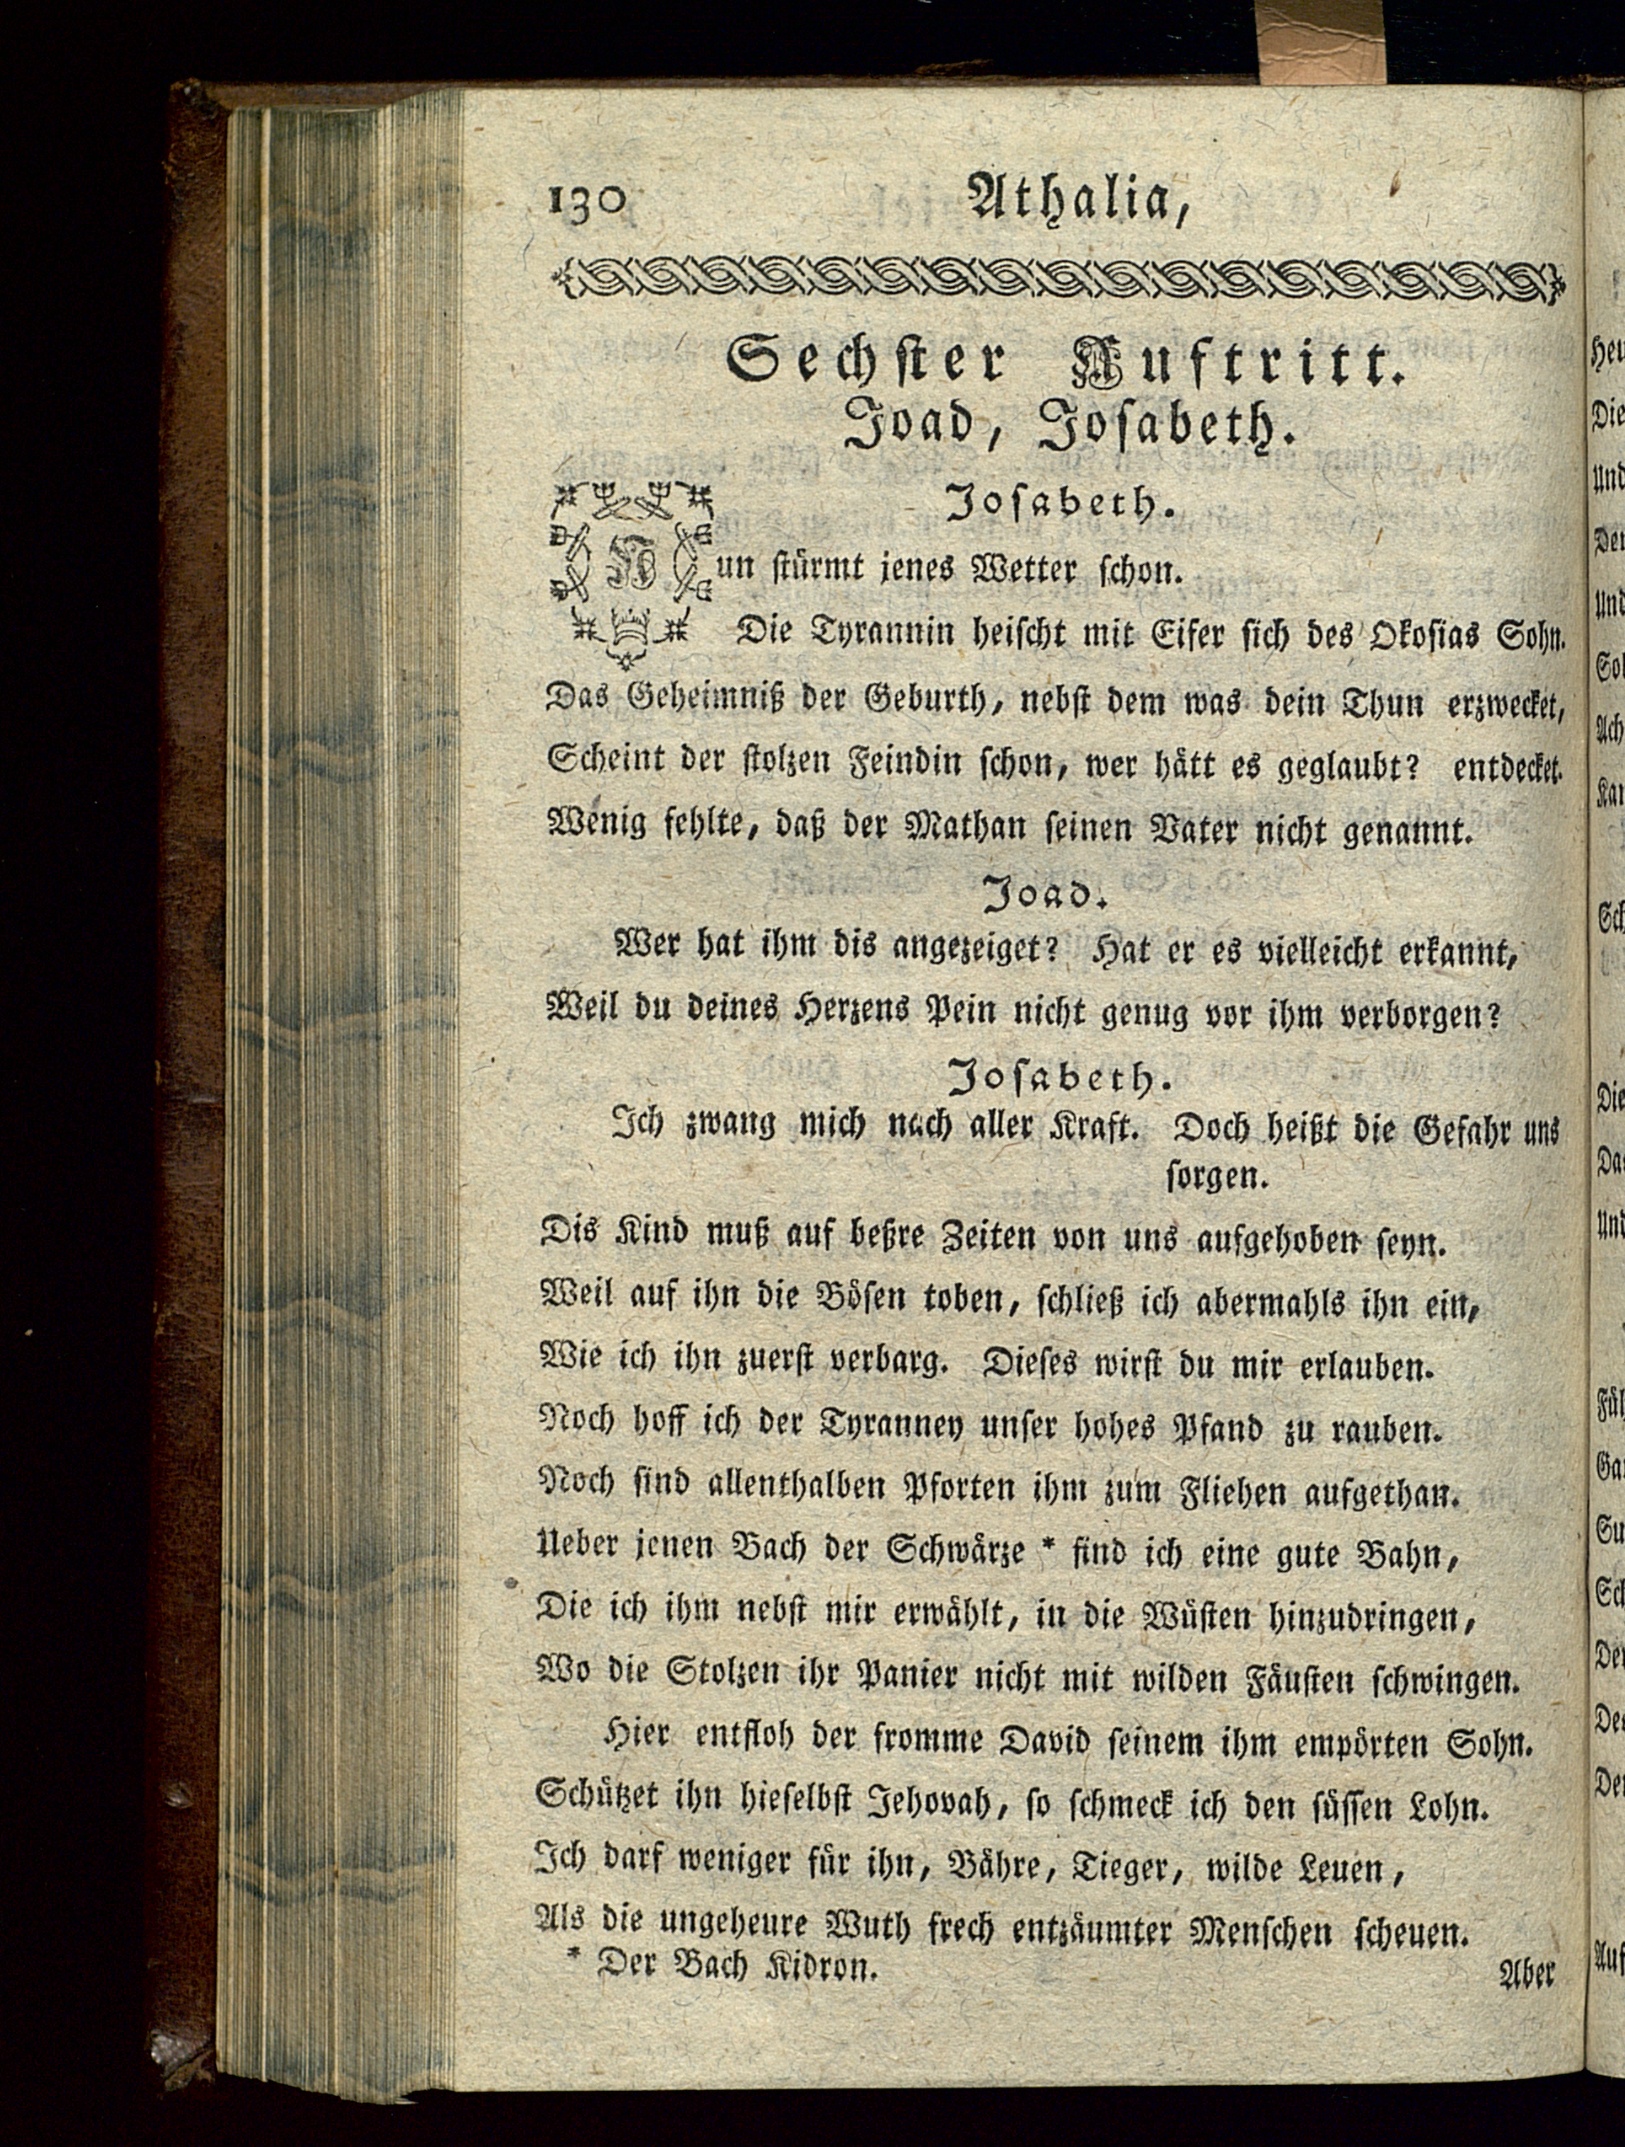 130 Athalia,
Sechster Auftritt.
Joad, Josabeth.
Josabeth.
Nun stürmt jenes Wetter schon.
Die Tyrannin heischt mit Eifer sich des Okosias Sohn.
Das Geheimniß der Geburth, nebst dem was dein Thun erzwecket,
Scheint der stolzen Feindin schon, wer hätt es geglaubt? entdecket.
Wenig fehlte, daß der Mathan seinen Vater nicht genannt.
Joad.
Wer hat ihm dis angezeiget? Hat er es vielleicht erkannt,
Weil du deines Herzens Pein nicht genug vor ihm verborgen?
Josabeth.
Ich zwang mich nach aller Kraft. Doch heißt die Gefahr uns
sorgen.
Dis Kind muß auf beßre Zeiten von uns aufgehoben seyn.
Weil auf ihn die Bösen toben, schließ ich abermahls ihn ein,
Wie ich ihn zuerst verbarg. Dieses wirst du mir erlauben.
Noch hoff ich der Tyranney unser hohes Pfand zu rauben.
Noch sind allenthalben Pforten ihm zum Fliehen aufgethan.
Ueber jenen Bach der Schwärze * find ich eine gute Bahn,
Die ich ihm nebst mir erwählt, in die Wüsten hinzudringen,
Wo die Stolzen ihr Panier nicht mit wilden Fäusten schwingen.
Hier entfloh der fromme David seinem ihm empörten Sohn.
Schützet ihn hieselbst Jehovah, so schmeck ich den süssen Lohn.
Ich darf weniger für ihn, Bähre, Tieger, wilde Leuen,
Als die ungeheure Wuth frech entzäumter Menschen scheuen.
* Der Bach Kidron.
Aber